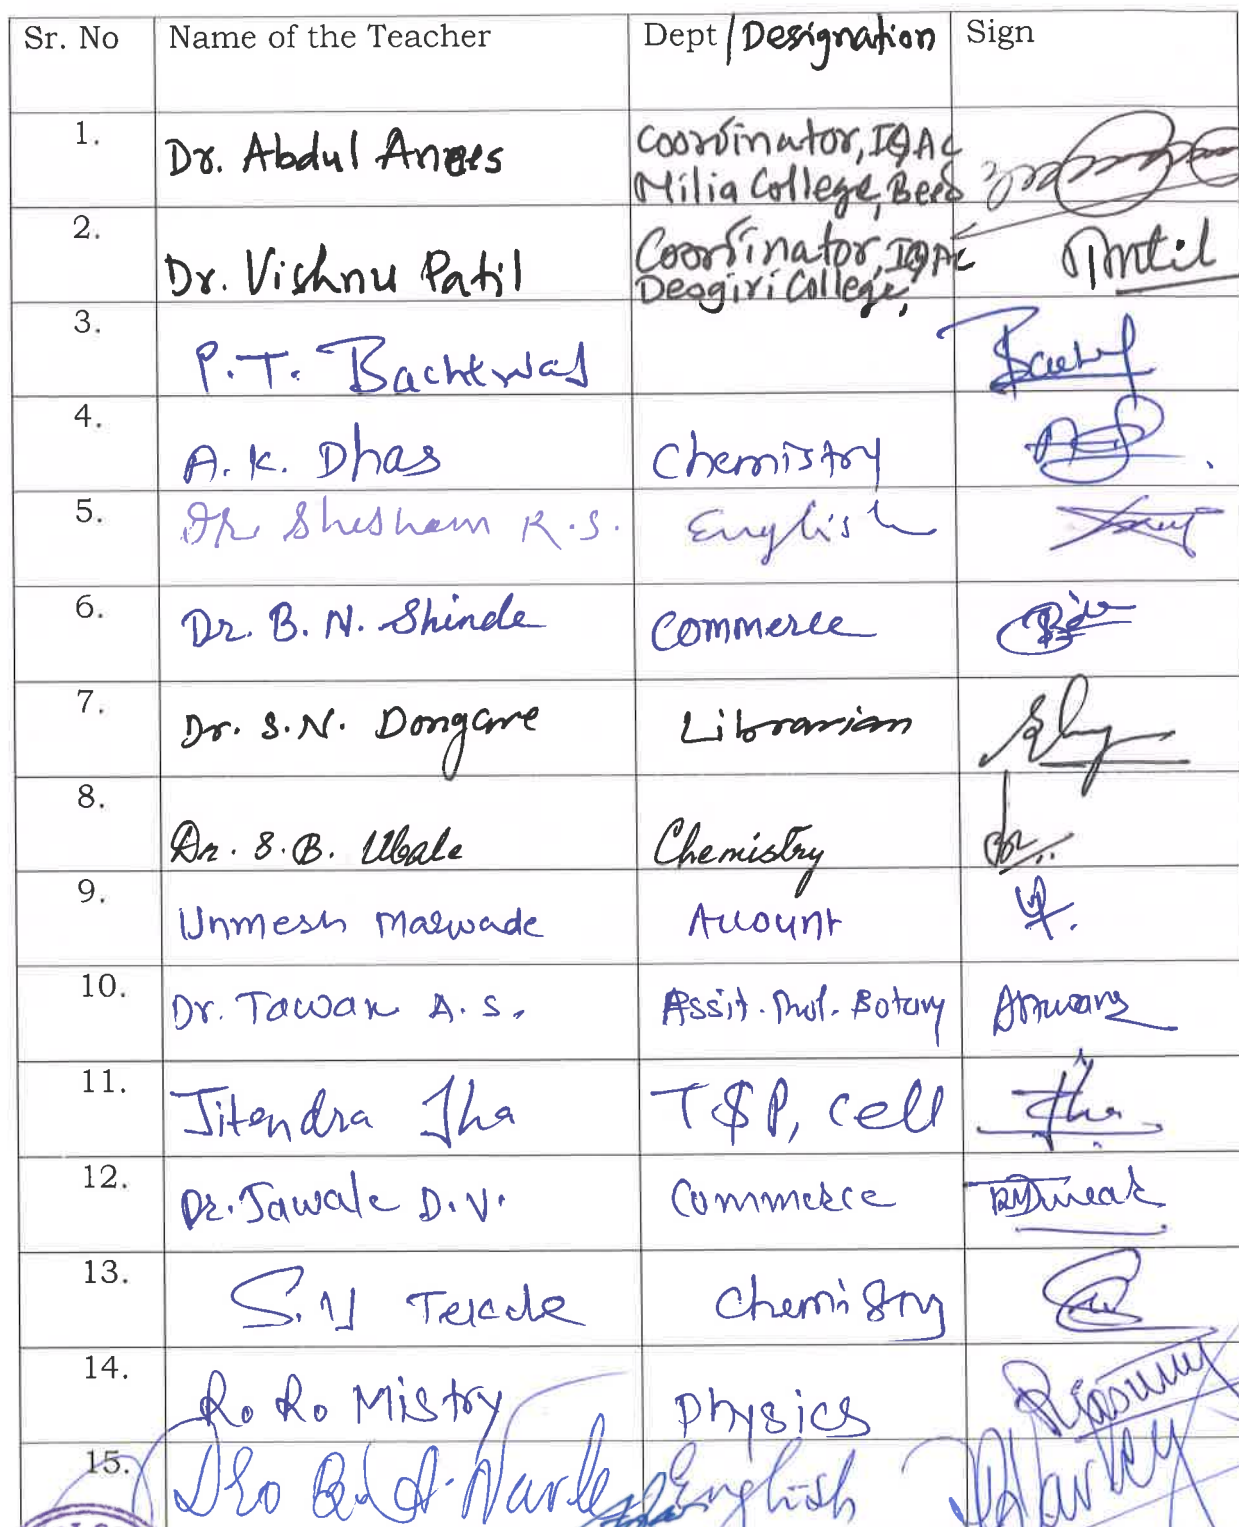 Sr. No Name of the Teacher Dept / Designation Sign
1. Dr. Abdul Anees Coordinator, IQAC
Milia College, Beed
2. Dr. Vishnu Patil Coordinator, IQAC
Deogiri College,
3. P.T.
4. A. K. Dhas Chemistry
5. Dr Shesham R.S. English
6. Dr. B. N. Shinde Commerce
7. Dr. S.N. Dongare Librarian
8. Dr. S.B. Ubale Chemistry
9. Unmesh Marwade Account
10. Dr. Tawar A. S. Assit. Prof. Botany
11. Jitendra Jha T&P, Cell Jha
12. Dr. Jawale D.V. Commerce
13. S. V Tekale Chemistry
14. R. R. Mistry Physics
15. English